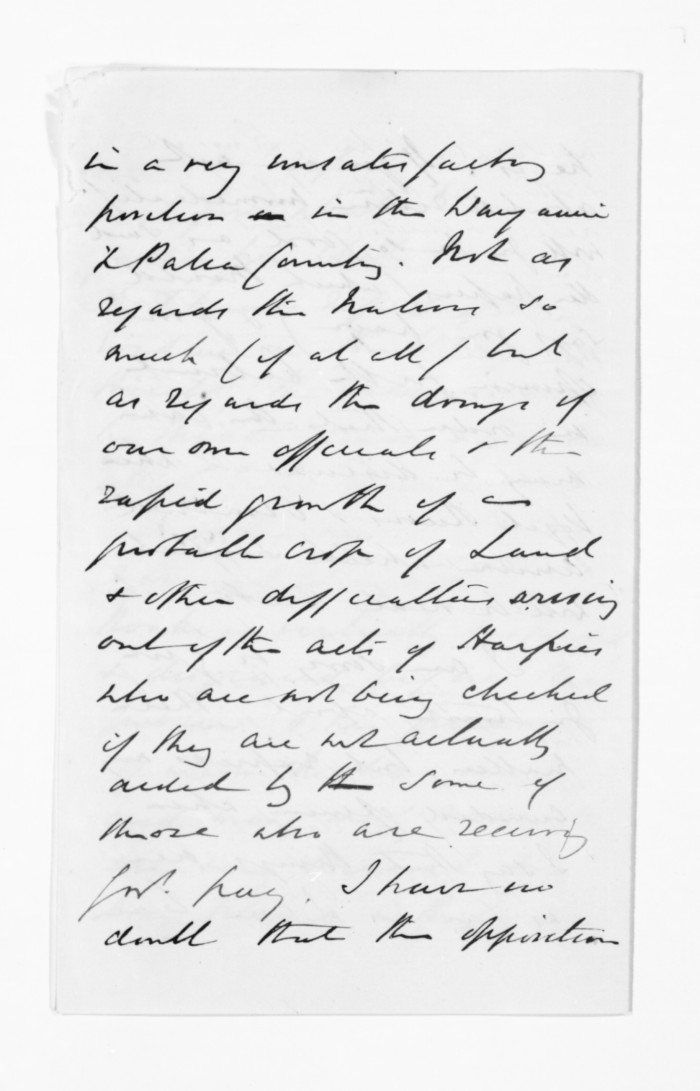 in a very unsatisfactory
position in in the Wanganui
& Patea Country. Not as
regards the Natives so
much (if at all) but
as regards the doings of
our own officials & the
rapid growth of a
probable crop of Land
& other difficulties arising
out of the acts of Harpies
who are not being checked
if they are not actually
aided by th some of
those who are receiving
Govt. pay. I have no
doubt that the opposition